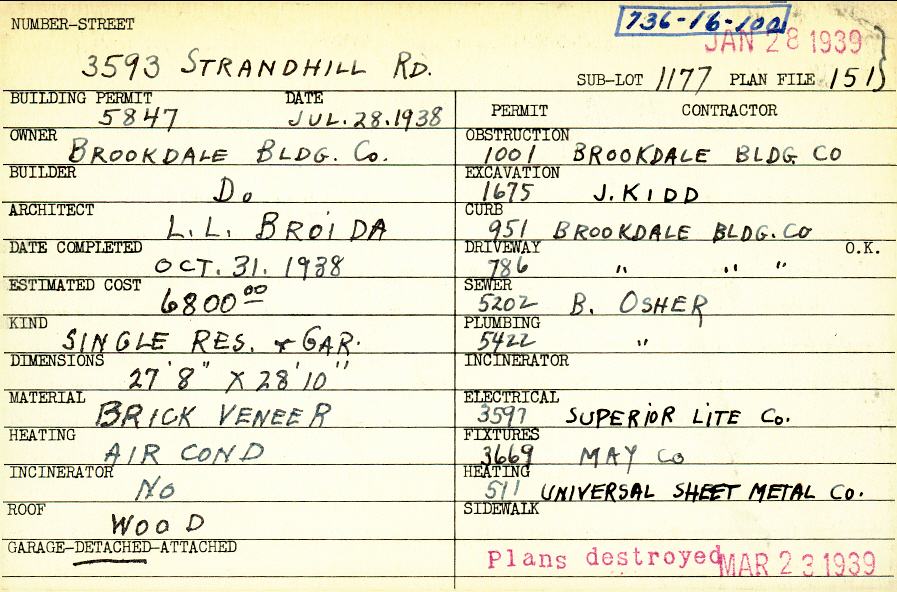 NUMBER-STREET
736-16-100
JAN 28 1939
3593 STRANDHILL RD.
SUB-LOT 1177 PLAN FILE 151
BUILDING PERMIT DATE
5847 JUL. 28. 1938
OWNER
BROOKDALE BLDG. Co.
BUILDER
Do
ARCHITECT
L. L. BROIDA
DATE COMPLETED
OCT. 31. 1938
ESTIMATED COST
6800 00
KIND
SINGLE RES. & GAR.
DIMENSIONS
27' 8" X 28' 10"
MATERIAL
BRICK VENEER
HEATING
AIR COND
INCINERATOR
NO
ROOF
WOOD
GARAGE-DETACHED-ATTACHED
PERMIT CONTRACTOR
OBSTRUCTION
1001 BROOKDALE BLDG CO
EXCAVATION
1675 J. KIDD
CURB
951 BROOKDALE BLDG. Co
DRIVEWAY O.K.
786 " " "
SEWER
5202 B. OSHER
PLUMBING
5422 "
INCINERATOR
ELECTRICAL
3597 SUPERIOR LITE Co.
FIXTURES
3669 MAY Co
HEATING
511 UNIVERSAL SHEET METAL Co.
SIDEWALK
Plans destroyed MAR 23 1939